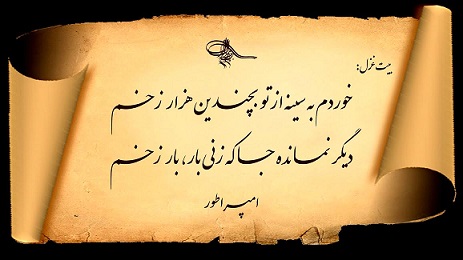 بیت غزل:
خوردم به سینه از تو بچندین هزار زخم
دیگر نمانده جا که زنی بار، بار زخم
امپراطور